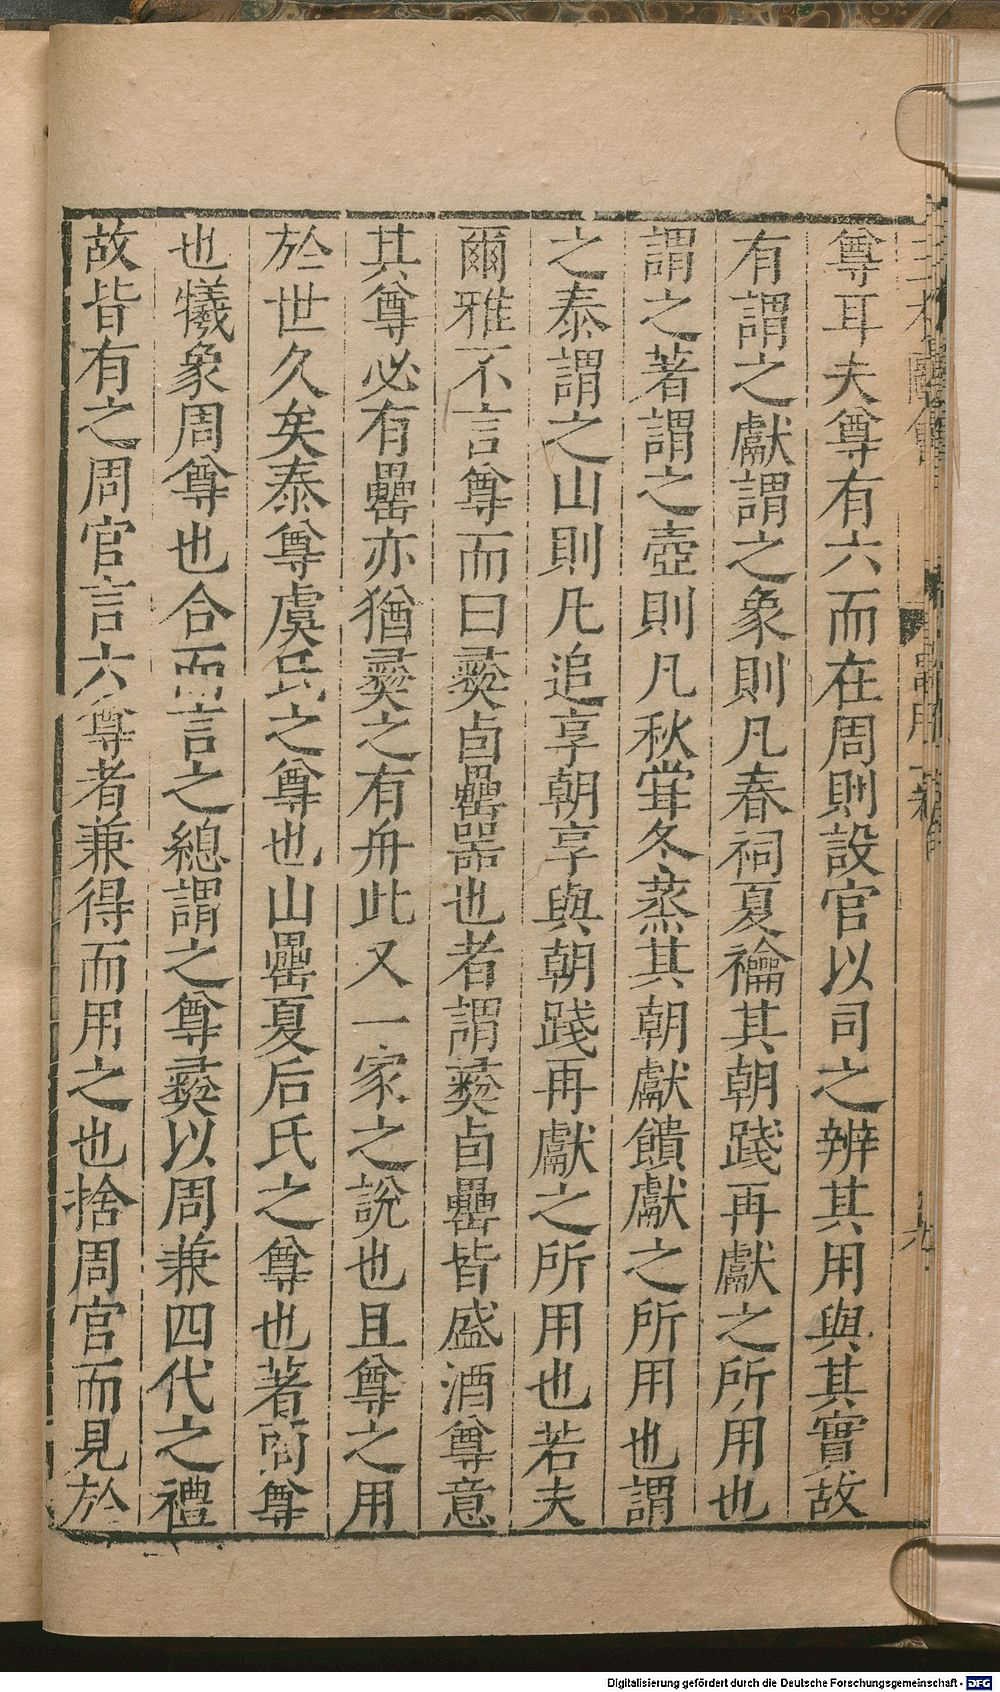 尊耳夫尊有六而在周則設官以司之辨其用與其實故
有謂之獻謂之象則凡春祠夏禴其朝踐再獻之所用也
謂之著謂之壺則凡秋甞冬蒸其朝獻饋獻之所用也謂
之泰謂之山則凡追享朝享與朝踐再獻之所用也若夫
爾雅不言尊而曰彝卣罍器也者謂彝卣罍皆盛酒尊意
其尊必有罍亦猶彝之有舟此又一家之說也且尊之用
於世久矣泰尊虞氏之尊也山罍夏后氏之尊也著商尊
也犧象周尊也合而言之總謂之尊彝以周兼四代之禮
故皆有之周官言六尊者兼得而用之也捨周官而見於
Digitalisierung gefördert durch die Deutsche Forschungsgemeinschaft - DFG